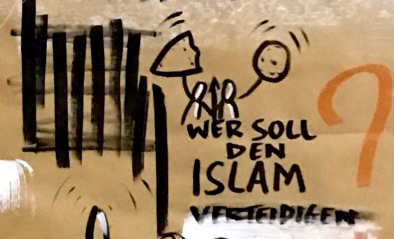 WER SOLL
DEN
ISLAM
VERTEIDIGEN
?